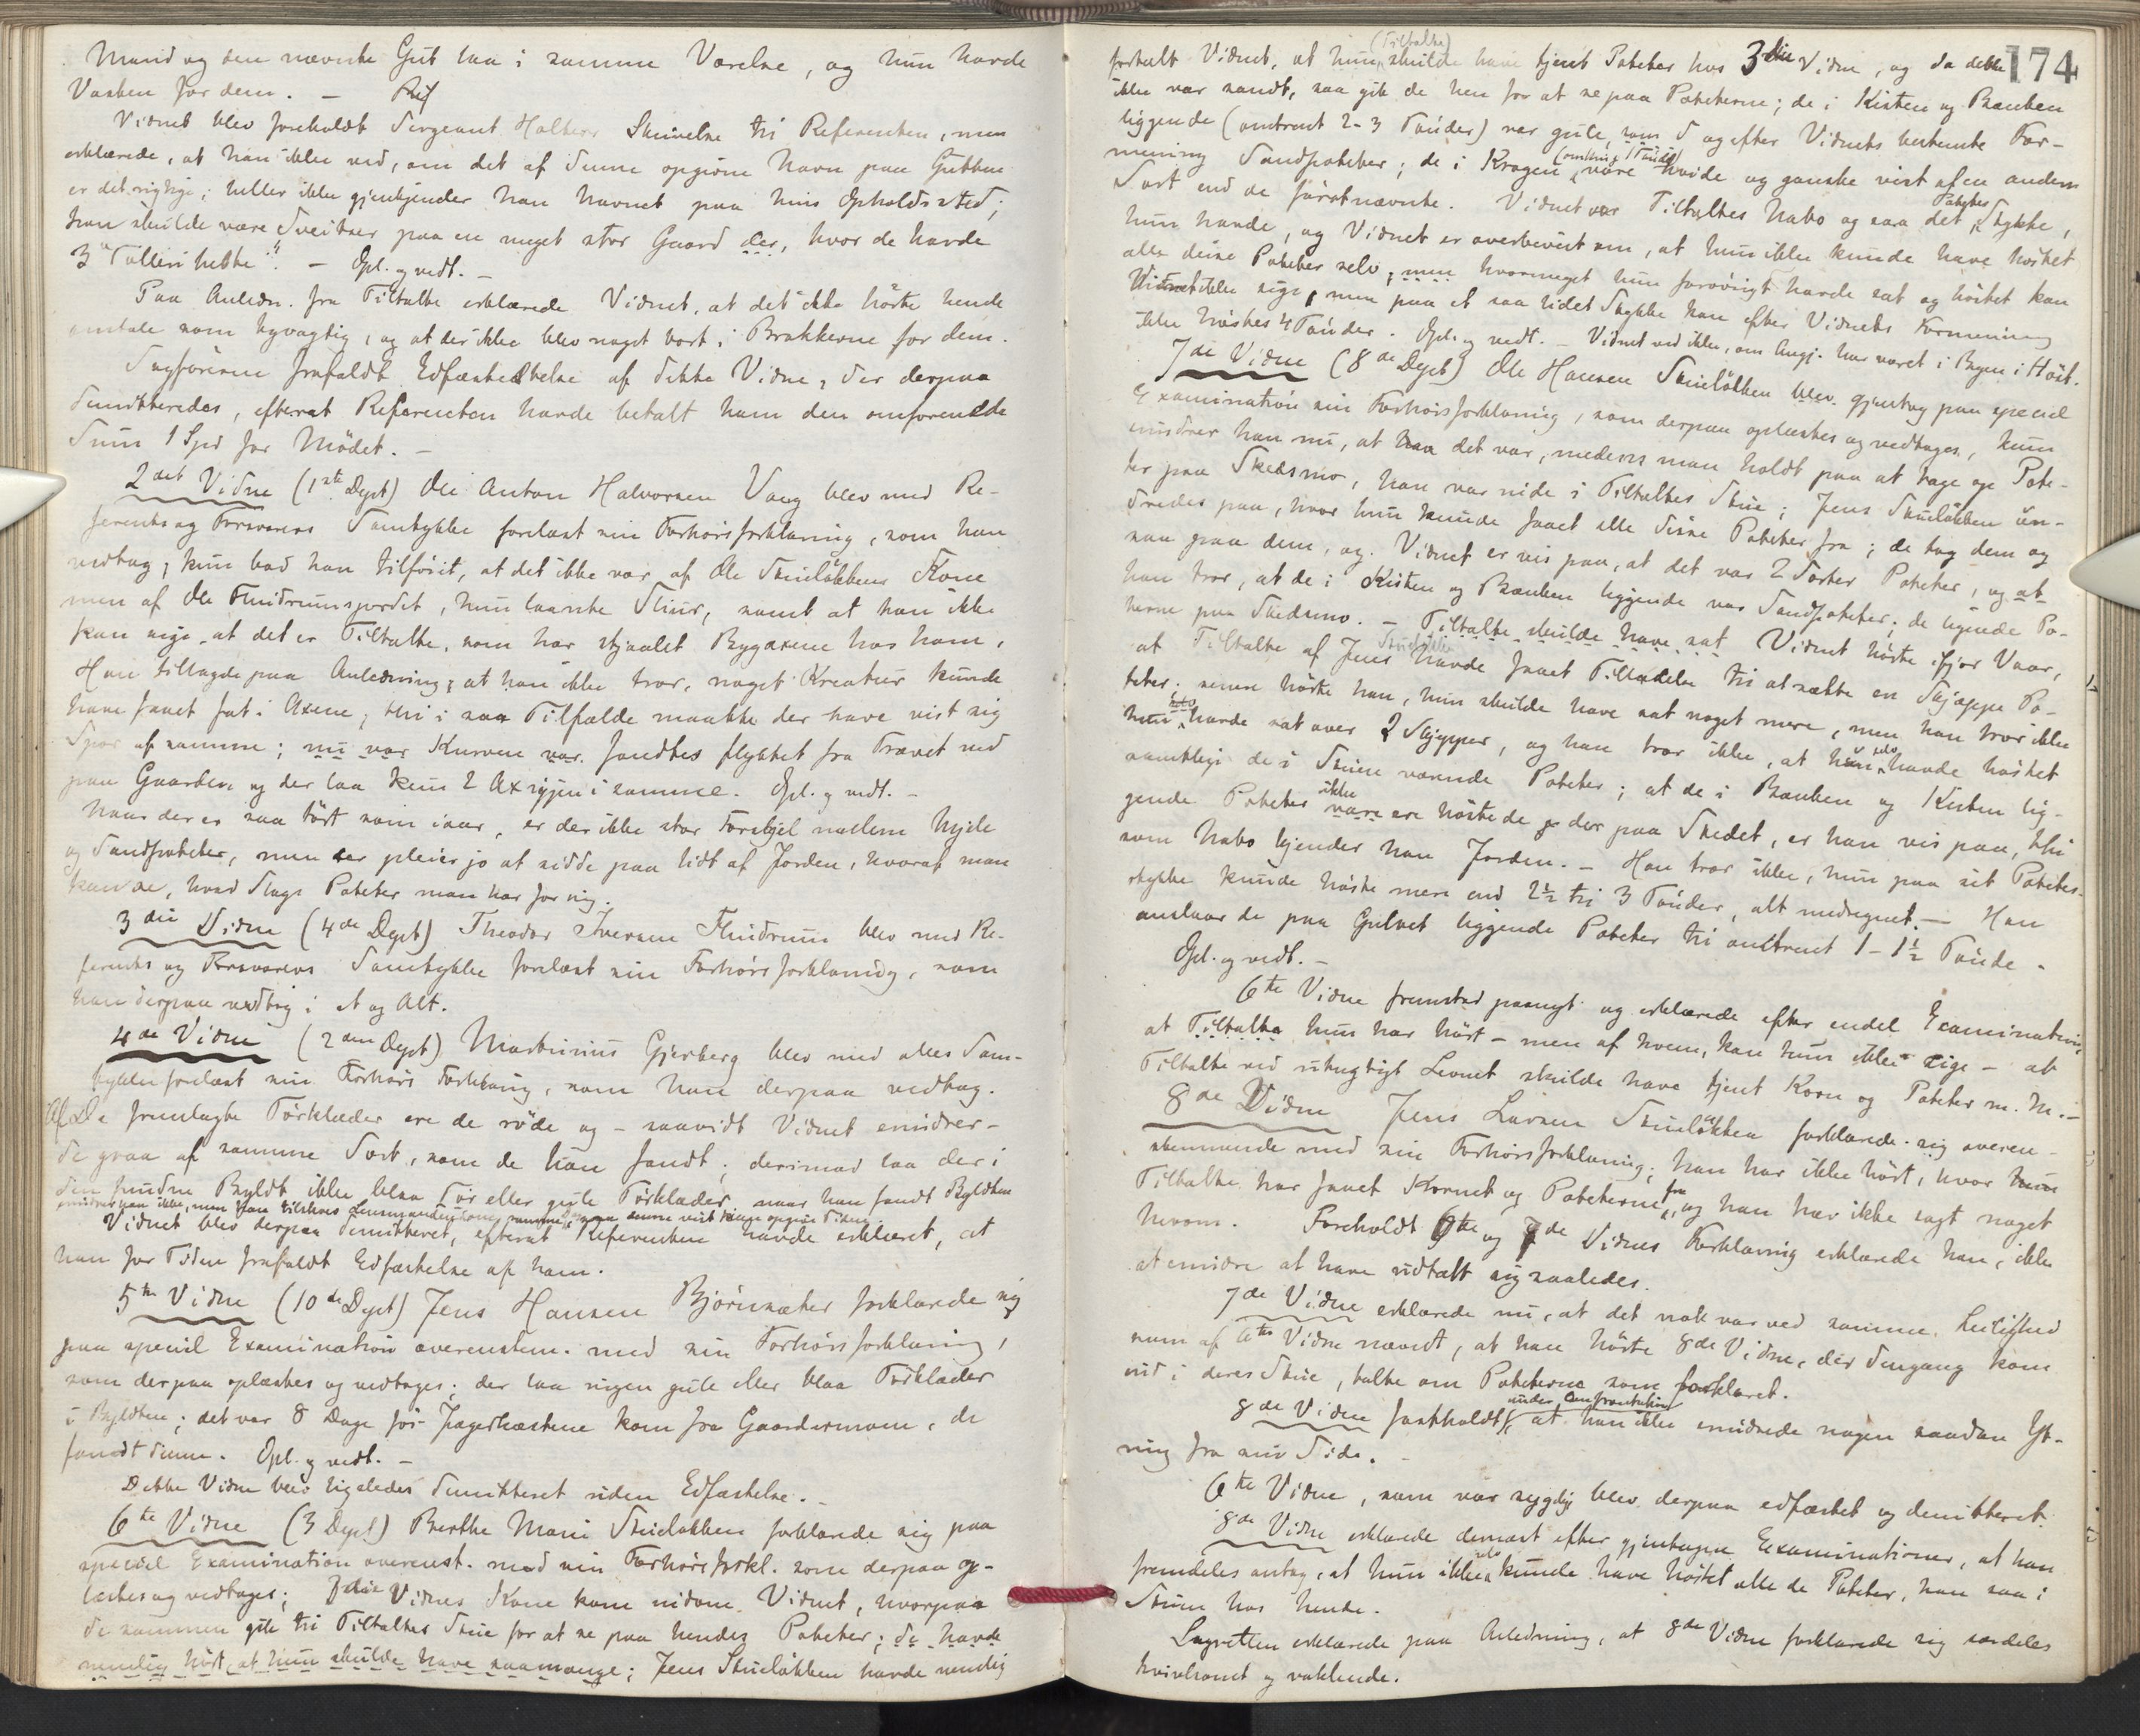 Mand og den nævnte Gut laa i samme Værelse, og hun havde
Vasken for dem. —
Vidnet blev foreholdt Sergeant Holters Skrivelse til Referenten, men
erklærede, at han ikke ved, om det af denne opgivne Navn paa Gutten
er det rigtige; heller ikke gjenkjender han Navnet paa hins Opholdssted;
han skulde være Sveitser paa en meget stor Gaard der, hvor de havde
3 "Tallerihette". — Opl. og vedt. —
Paa Anledn. fra Tiltalte erklærede Vidnet, at det ikke hørte hende
omtale som tyvagtig, og at der ikke blev noget bort i Brakkerne for dem.
Sagførerne frafaldt Edfæstelse af dette Vidne, der derpaa
demitteredes, efterat Referenten havde betalt ham den omforenede
Sum 1 Spd for Mødet. —
2det Vidne (1ste Dept) Ole Anton Halvorsen Vang blev med Re-
ferents og Forsvarers Samtykke forelæst sin Forhørsforklaring, som han
vedtog; kun bad han tilføiet, at det ikke var af Ole Skueløkkens Kone
men af Ole Fluidrumsjordet, hun laante Sliur, samt at han ikke
kan sige, at det er Tiltalte, som har stjaalet Bygaxene hos ham.
Han tillagde paa Anledning, at han ikke tror, noget Kreatur kunde
have faaet fat i Axene, thi i saa Tilfælde maatte der have vist sig
Spor af samme; nu var Kurven var fandtes flyttet fra Travet ned
paa Gaarden og der laa kun 2 Ax igjen i samme. Opl. og vedt. —
Naar der er saa tørt som iaar, er der ikke stor Forskjel mellem Myde
og Sandpoteter, men der pleier jo at sidde paa lidt af Jorden, hvoraf man
kan se, hvad Slags Poteter man har for sig.
3die Vidne (4de Dept) Theodor Iversen Fluidrum blev med Re-
ferents og Forsvarers Samtykke forelæst sin Forhørsforklaring, som
han derpaa vedtog i et og Alt.
4de Vidne (2den Dept) Martinius Gjerberg blev med alles Sam-
tykke forelæst sin Forhørs Forklaring, som han derpaa vedtog.
Af De fremlagte Tørklæder ere de røde og — saavidt Vidnet erindrer —
de graa af samme Sort, som de han fandt; derimod laa der i
den fundne Byldt ikke blaa Tør eller gule Tørklæder naar han fandt Byldten
Vidnet blev derpaa demitteret, efterat Referenten havde erklæret, at
han for Tiden frafaldt Edfæstelse af ham.
5te Vidne (10de Dept) Jens Hansen Bjørnsæter forklarede sig
paa speciel Examination overenstem. med sin Forhørsforklaring,
som derpaa oplæstes og vedtoges; der laa ingen gule eller blaa Tørklæder
i Byldten; det var 8 Dage før Jagerhestene kom fra Gardermoen, de
fandt denne. Opl. og vedt. —
Dette Vidne blev ligeledes demitteret uden Edfæstelse. —
6te Vidne (3 Dept) Berthe Marie Skueløkken forklarede sig paa
speciel Examination overenst. med sin Forhørsforkl. som derpaa op-
læstes og vedtoges; 3die Vidnes Kone kom ned om Vidnet, hvorpaa
de sammen gik til Tiltaltes Stue for at se paa hendes Poteter; de havde
nemlig hørt, at hun skulde have saamange; Jens Skueløkken havde nemlig
174
fortalt Vidnet, at hun (Tiltalte) skulde have tjent Poteter hos 3die Vidne, og da dette
ikke var sandt, saa gik de hen for at se paa Poteterne; de i Kisten og Bænken
liggende (omtrent 2-3 Tønder) var gule, som S og efter Vidnets bestemte For-
mening Sandpoteter; de i Krogen (omkring 1 Tønde) vare hvide og ganske vist af en anden
Sort end de førstnævnte. Vidnet var Tiltaltes Nabo og saa det Potetes Stykke,
hun havde, og Vidnet er overbevist om, at hun ikke kunde have høstet
alle disse Poteter selv; men hvormeget hun forøvrigt havde sat og høstet kan
Vidnet ikke sige, men paa et saa lidet Stykke kan efter Vidnets Formening
ikke høstes 4 Tønder. Opl. og vedt. — Vidnet ved ikke, om Angj. har været i Bygen i Høst.
7de Vidne (8de Dept) Ole Hansen Skueløkken blev gjentog paa speciel
Examination sin Forhørsforklaring, som derpaa oplæstes og vedtoges, kun
erindrer han nu, at han det var, medens man holdt paa at tage op Pote-
ter paa Skedsmo, han var inde i Tiltaltes Stue; Jens Skueløkken un-
dredes paa, hvor hun kunde faaet alle disse Poteter fra; de tog dem og
saa paa dem, og Vidnet er vis paa, at det var 2 Sorter Poteter, og at
han tror, at de i Kisten og Bænken liggende var Sandpoteter; de lignede Po-
terne paa Skedsmo. — Tiltalte skulde have sat Vidnet hørte ifjor Vaar,
at Tiltalte af Jens Skueløkken havde faaet Tilladelse til at sætte en Skjæppe Po-
teter; senere hørte han, hun skulde have sat noget mere, men han tror ikke
hun havde sat over 2 Skjepper, og han tror ikke, at hun selv havde høstet
samtlige de i Stuen værende Poteter; at de i Bænken og Kisten lig-
gende Poteter ikke vare ere høstede der paa Stedet, er han vis paa, thi
som Nabo kjender han Jorden. — Han tror ikke, hun paa sit Potetes-
stykke kunde høste mere end 2½ til 3 Tønder, alt medregnet. — Han
anslaar de paa Gulvet liggende Poteter til omtrent 1 - 1½ Tønde.
Opl. og vedt. —
6te Vidne fremstod paanyt og erklærede efter endel Examination,
at Tiltalte hun har hørt — men af hvem, kan hun ikke sige — at
Tiltalte ved utugtigt Levnet skulde have tjent Korn og Poteter m. M. —
8de Vidne Jens Larsen Skueløkken forklarede sig overens-
stemmende med sin Forhørsforklaring; han har ikke hørt, hvor hun
Tiltalte har faaet Kornet og Poteterne fra, og han har ikke sagt noget
herom. Foreholdt 6te og 7de Vidnes Forklaring erklærede han, ikke
at erindre at have udtalt sig saaledes.
7de Vidne erklærede nu, at det nok var ved samme Leilighed
som af 6te Vidne nævnt, at han hørte 8de Vidne, der dengang kom
ind i deres Stue, talte om Poteterne som forklaret.
8de Vidne fastholdt under Confrontation, at han ikke erindrede nogen saadan Yt-
ring fra sin Side. —
6te Vidne, som var sygelig blev derpaa edfæstet og demitteret.
8de Vidne erklærede dernæst efter gjentagne Examinationer, at han
fremdeles antog, at hun ikke selv kunde have høstet alle de Poteter, han saa i
Stuen hos hende.
Lagretten erklærede paa Anledning, at 8de Vidne forklarede sig særdeles
tvivlsomt og vaklende.